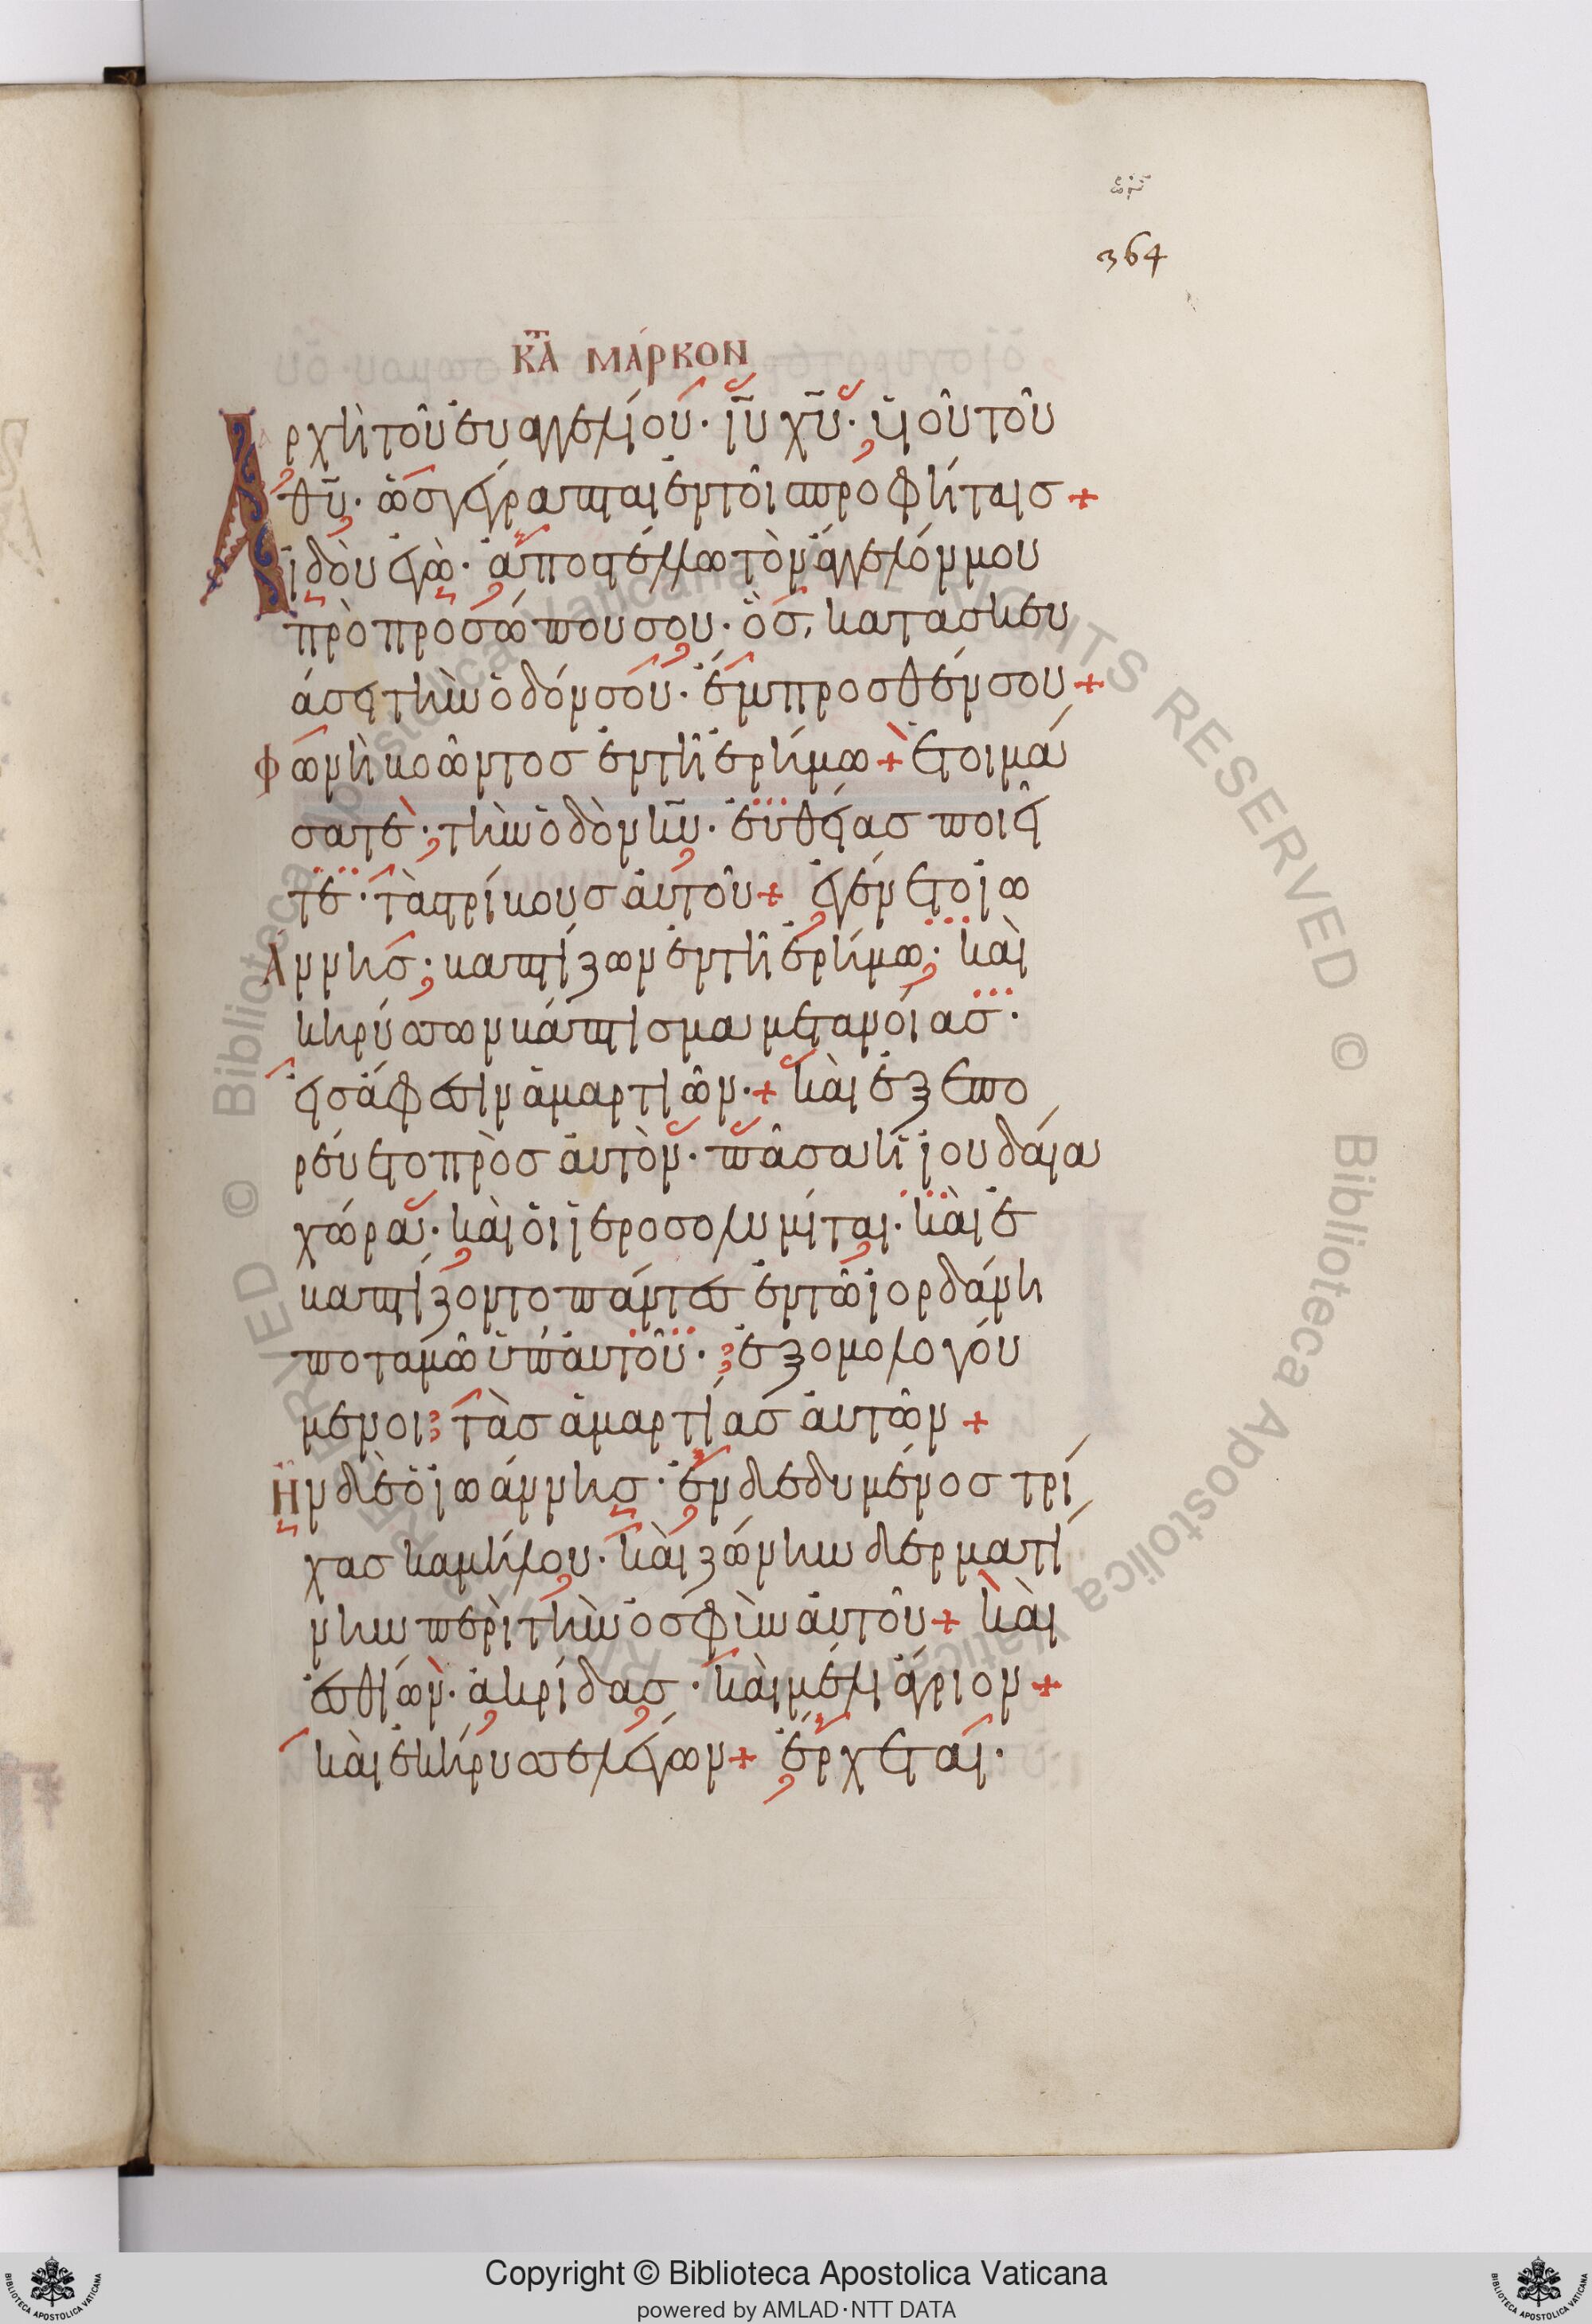 364
κ̅τ̅α̅ μάρκον
Ἀρχὴ τοῦ ἐυαγγελίου· ἰ̅υ̅ χ̅υ̅· ὑιοῦ τοῦ
θ̅υ̅· ὡσ γέγραπται ἐν τοῖσ προφήταισ +
ἰδοὺ ἐγὼ· ἀποστέλλω τὸν ἄγγελόν μου
πρὸ προσώπου σου· ὃσ, κατασκευ
άσει τὴν ὁδόν σου· ἔμπροσθέν σου +
Φωνὴ βοῶντοσ ἐν τῆ ἐρήμω + ἑτοιμά
σατε· τὴν ὁδὸν κ̅υ̅· ἐυθείασ ποιεῖ
τε· τὰσ τρίβουσ ἀυτοῦ + ἐγένετο ἰω
Άννησ· βαπτίζων ἐν τῆ ἐρήμω· καὶ
κηρύσσων βάπτισμα μετανόιασ·
εἰσ ἄφεσιν ἁμαρτιῶν· + καὶ ἐξεπο
ρέυετο πρὸσ ἀυτὸν· πᾶσα ἡ ἰουδάια
χώρα· καὶ ὁι ἱεροσολυμίται· καὶ ἐ
βαπτίζοντο πάντεσ ἐν τῶ ἰορδάνη
ποταμῶ ὑπ' ἀυτοῦ· ἐξομολογού
μενοι τὰσ ἁμαρτίασ ἀυτῶν +
Ἦν δὲ ὁ ἰωάννησ· ἐνδεδυμένοσ τρί
χασ καμήλου· καὶ ζώνην δερματί
νην περὶ τὴν ὀσφὺν ἀυτοῦ + καὶ
ἐσθίων· ἀκρίδασ· καὶ μέλι ἄγριον +
καὶ ἐκήρυσσε λέγων + ἔρχεται·
Copyright © Biblioteca Apostolica Vaticana
powered by AMLAD·NTT DATA